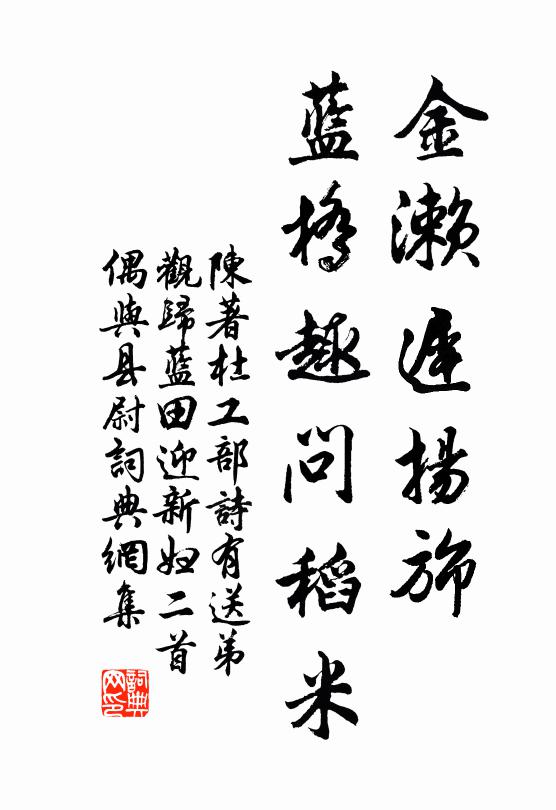 金瀨遲揚旆
藍橋趣問稻米
陳著杜工部詩有送弟
觀歸藍田迎新妇二首
偶與县尉詞典網集
詞典网印